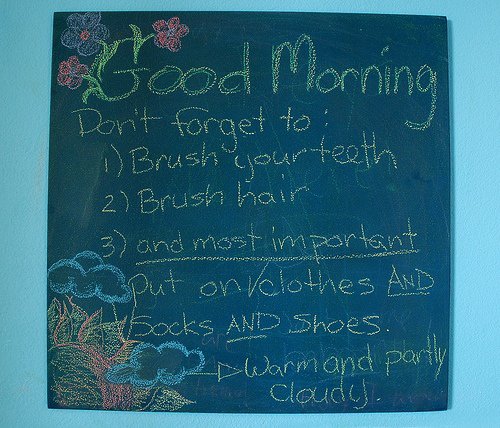 Good Morning
Don't forget to:
1) Brush your teeth
2) Brush hair
3) and most important
Put on clothes AND
Socks AND Shoes.
Warm and partly
cloudy.